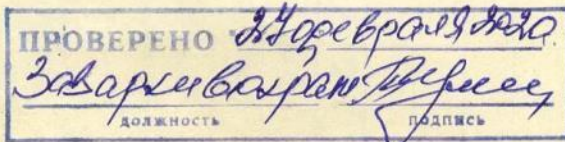 ПРОВЕРЕНО "27 февраля 2020
Зав архивохран
должность подпись